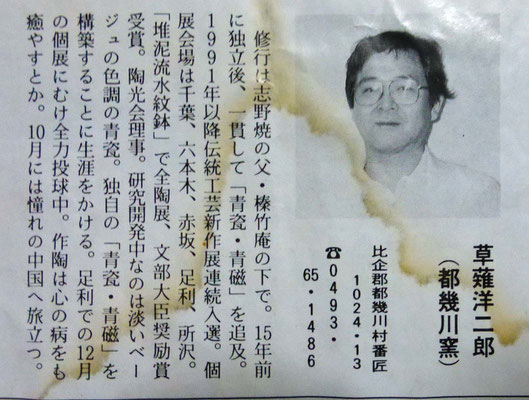 草薙洋二郎
(都幾川窯)
比企郡都幾川村番匠
1024・13
☎0493・
65・1486
修行は志野焼の父・榛竹庵の下で。15年前
に独立後、一貫して「青瓷・青磁」を追及。
1991年以降伝統工芸新作展連続入選。個
展会場は千葉、六本木、赤坂、足利、所沢。
「堆泥流水紋鉢」で全陶展、文部大臣奨励賞
受賞。陶光会理事。研究開発中なのは淡いベー
ジュの色調の青瓷。独自の「青瓷・青磁」を
構築することに生涯をかける。足利での12月
の個展にむけ全力投球中。作陶は心の病をも
癒やすとか。10月には憧れの中国へ旅立つ。